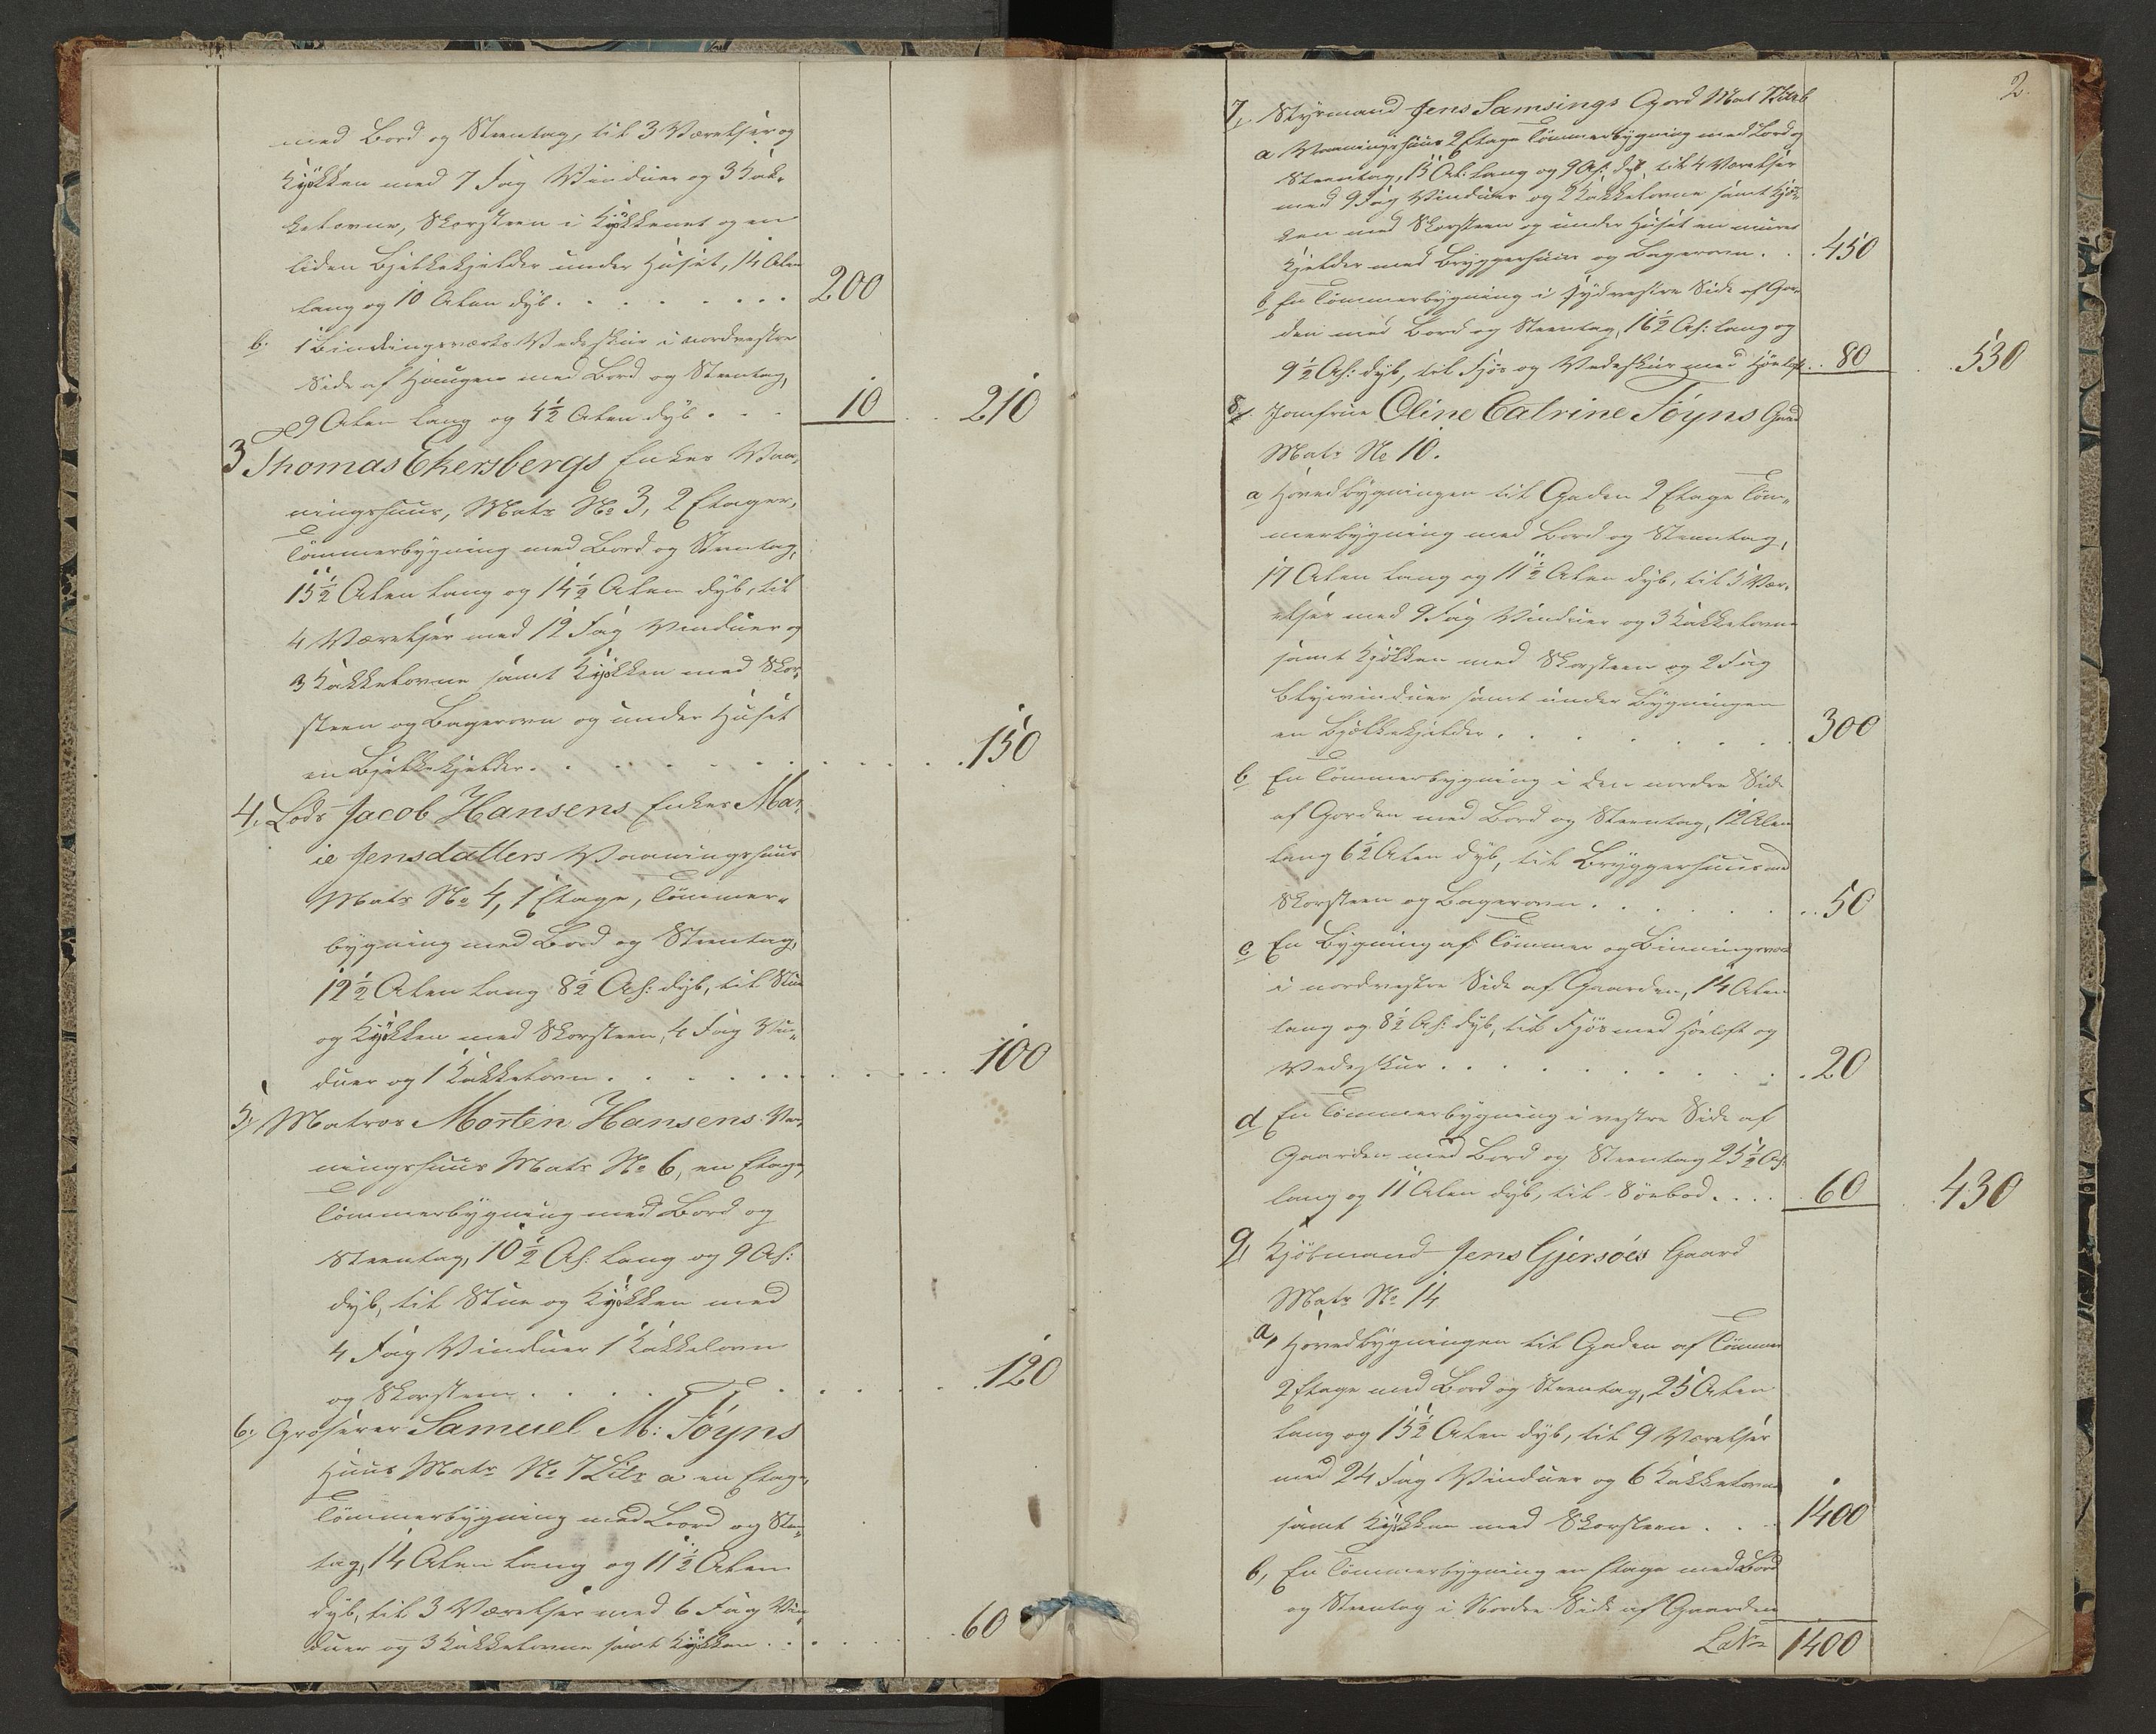 med Bord og Steentag, til 3 Værelser og
Kjøkken med 7 Fag Vinduer og 3 Kak-
kelovne, Skorsteen i Kjøkkenet og en
liden Bjelkekjelder under Huset, 14 Alen
lang og 10 Alen dyb . . . . . . . . 200
b. 1 Bindingsværks Vedeskur i nordvestre
Side af Haugen med Bord og Steentag,
9 Alen lang og 4½ Alen dyb . . . 10 . . 210
3 Thomas Ekersbergs Enkes Vaa-
ningshuus, Matr No 3, 2 Etager,
Tömmerbygning med Bord og Steentag,
15½ Alen lang og 14½ Alen dyb, til
4 Værelser med 12 Fag Vinduer og
3 Kakkelovne samt Kjøkken med Skor-
steen og Bagerovn og under Huset
en Bjelkekjelder . . . . . . . . . . 150
4, Lods Jacob Hansens Enkes Mar-
ie Jensdatters Vaaningshuus
Matr No 4, 1 Etage, Tömmer-
bygning med Bord og Steentag,
12½ Alen lang 8½ Al: dyb, til Stue
og Kjøkken med Skorsteen, 4 Fag Vin-
duer og 1 Kakkelovn . . . . . . . . . . 100
5, Matros Morten Hansens Vaa-
ningshuus Matr No 6, en Etage,
Tömmerbygning med Bord og
Steentag, 10½ Al: lang og 9 Al:
dyb, til Stue og Kjøkken med
4 Fag Vinduer 1 Kakkelovn
og Skorsteen . . . . . . . . . 120
6, Groserer Samuel M: Föyns
Huus Matr No 7 Litr a en Etage,
Tömmerbygning med Bord og Steen-
tag, 14 Alen lang og 11½ Alen
dyb, til 3 Værelser med 6 Fag Vin-
duer og 3 Kakkelovne samt Kjøkken . . . . . . 60
2.
7, Styrmand Jens Samsings Gord Mat 7 Litr b
a Vaaningshuus 2 Etage Tömmerbygning med Bord og
Steentag, 15 Al: lang og 9 Al: dyb, til 4 Værelser
med 9 Fag Vinduer og 2 Kakkelovne samt Kjøk-
ken med Skorsteen og under Huset en muret
Kjelder med Bryggerhuus og Bagerovn . . . 450
b En Tömmerbygning i sydvestre Side af Gor-
den med Bord og Steentag, 16½ Al: lang og
9½ Al: dyb, til Fjös og Vedeskur med Höeloft . . 80 . . 530
8, Jomfrue Oline Catrine Föyns Gaard
Matr No 10.
a Hovedbygningen til Gaden 2 Etage Töm-
merbygning med Bord og Steentag,
17 Alen lang og 11½ Alen dyb, til 5 Vær-
elser med 9 Fag Vinduer og 3 Kakkelovne
samt Kjökken med Skorsteen og 2 Fag
Blyevinduer samt under Bygningen
en Bjælkekjelder . . . . . . . . 300
b En Tömmerbygning i den nordre Side
af Gorden med Bord og Steentag, 12 Alen
lang 6½ Alen dyb, til Bryggerhuus med
Skorsteen og Bagerovn . . . . . . . 50
c En Bygning af Tömmer og Binningsværk
i nordvestre Side af Gaarden, 14 Alen
lang og 8½ Al: dyb, til Fjös med Höeloft og
Vedeskur . . . . . . . . . . 20
d En Tömmerbygning i vestre Side af
Gaarden med Bord og Steentag 25½ Al:
lang og 11 Alen dyb, til Söebod . . . . 60 . 430
9, Kjöbmand Jens Gjersöes Gaard
Matr No 14
a, Hovedbygningen til Gaden af Tömmer
2 Etage med Bord og Steentag, 25 Alen
lang og 15½ Alen dyb, til 9 Værelser
med 24 Fag Vinduer og 6 Kakkelovne
samt Kjøkken med Skorsteen . . . 1400
b, En Tömmerbygning en Etage med Bord
og Steentag i Nordre Side af Gaarden
Latr 1400